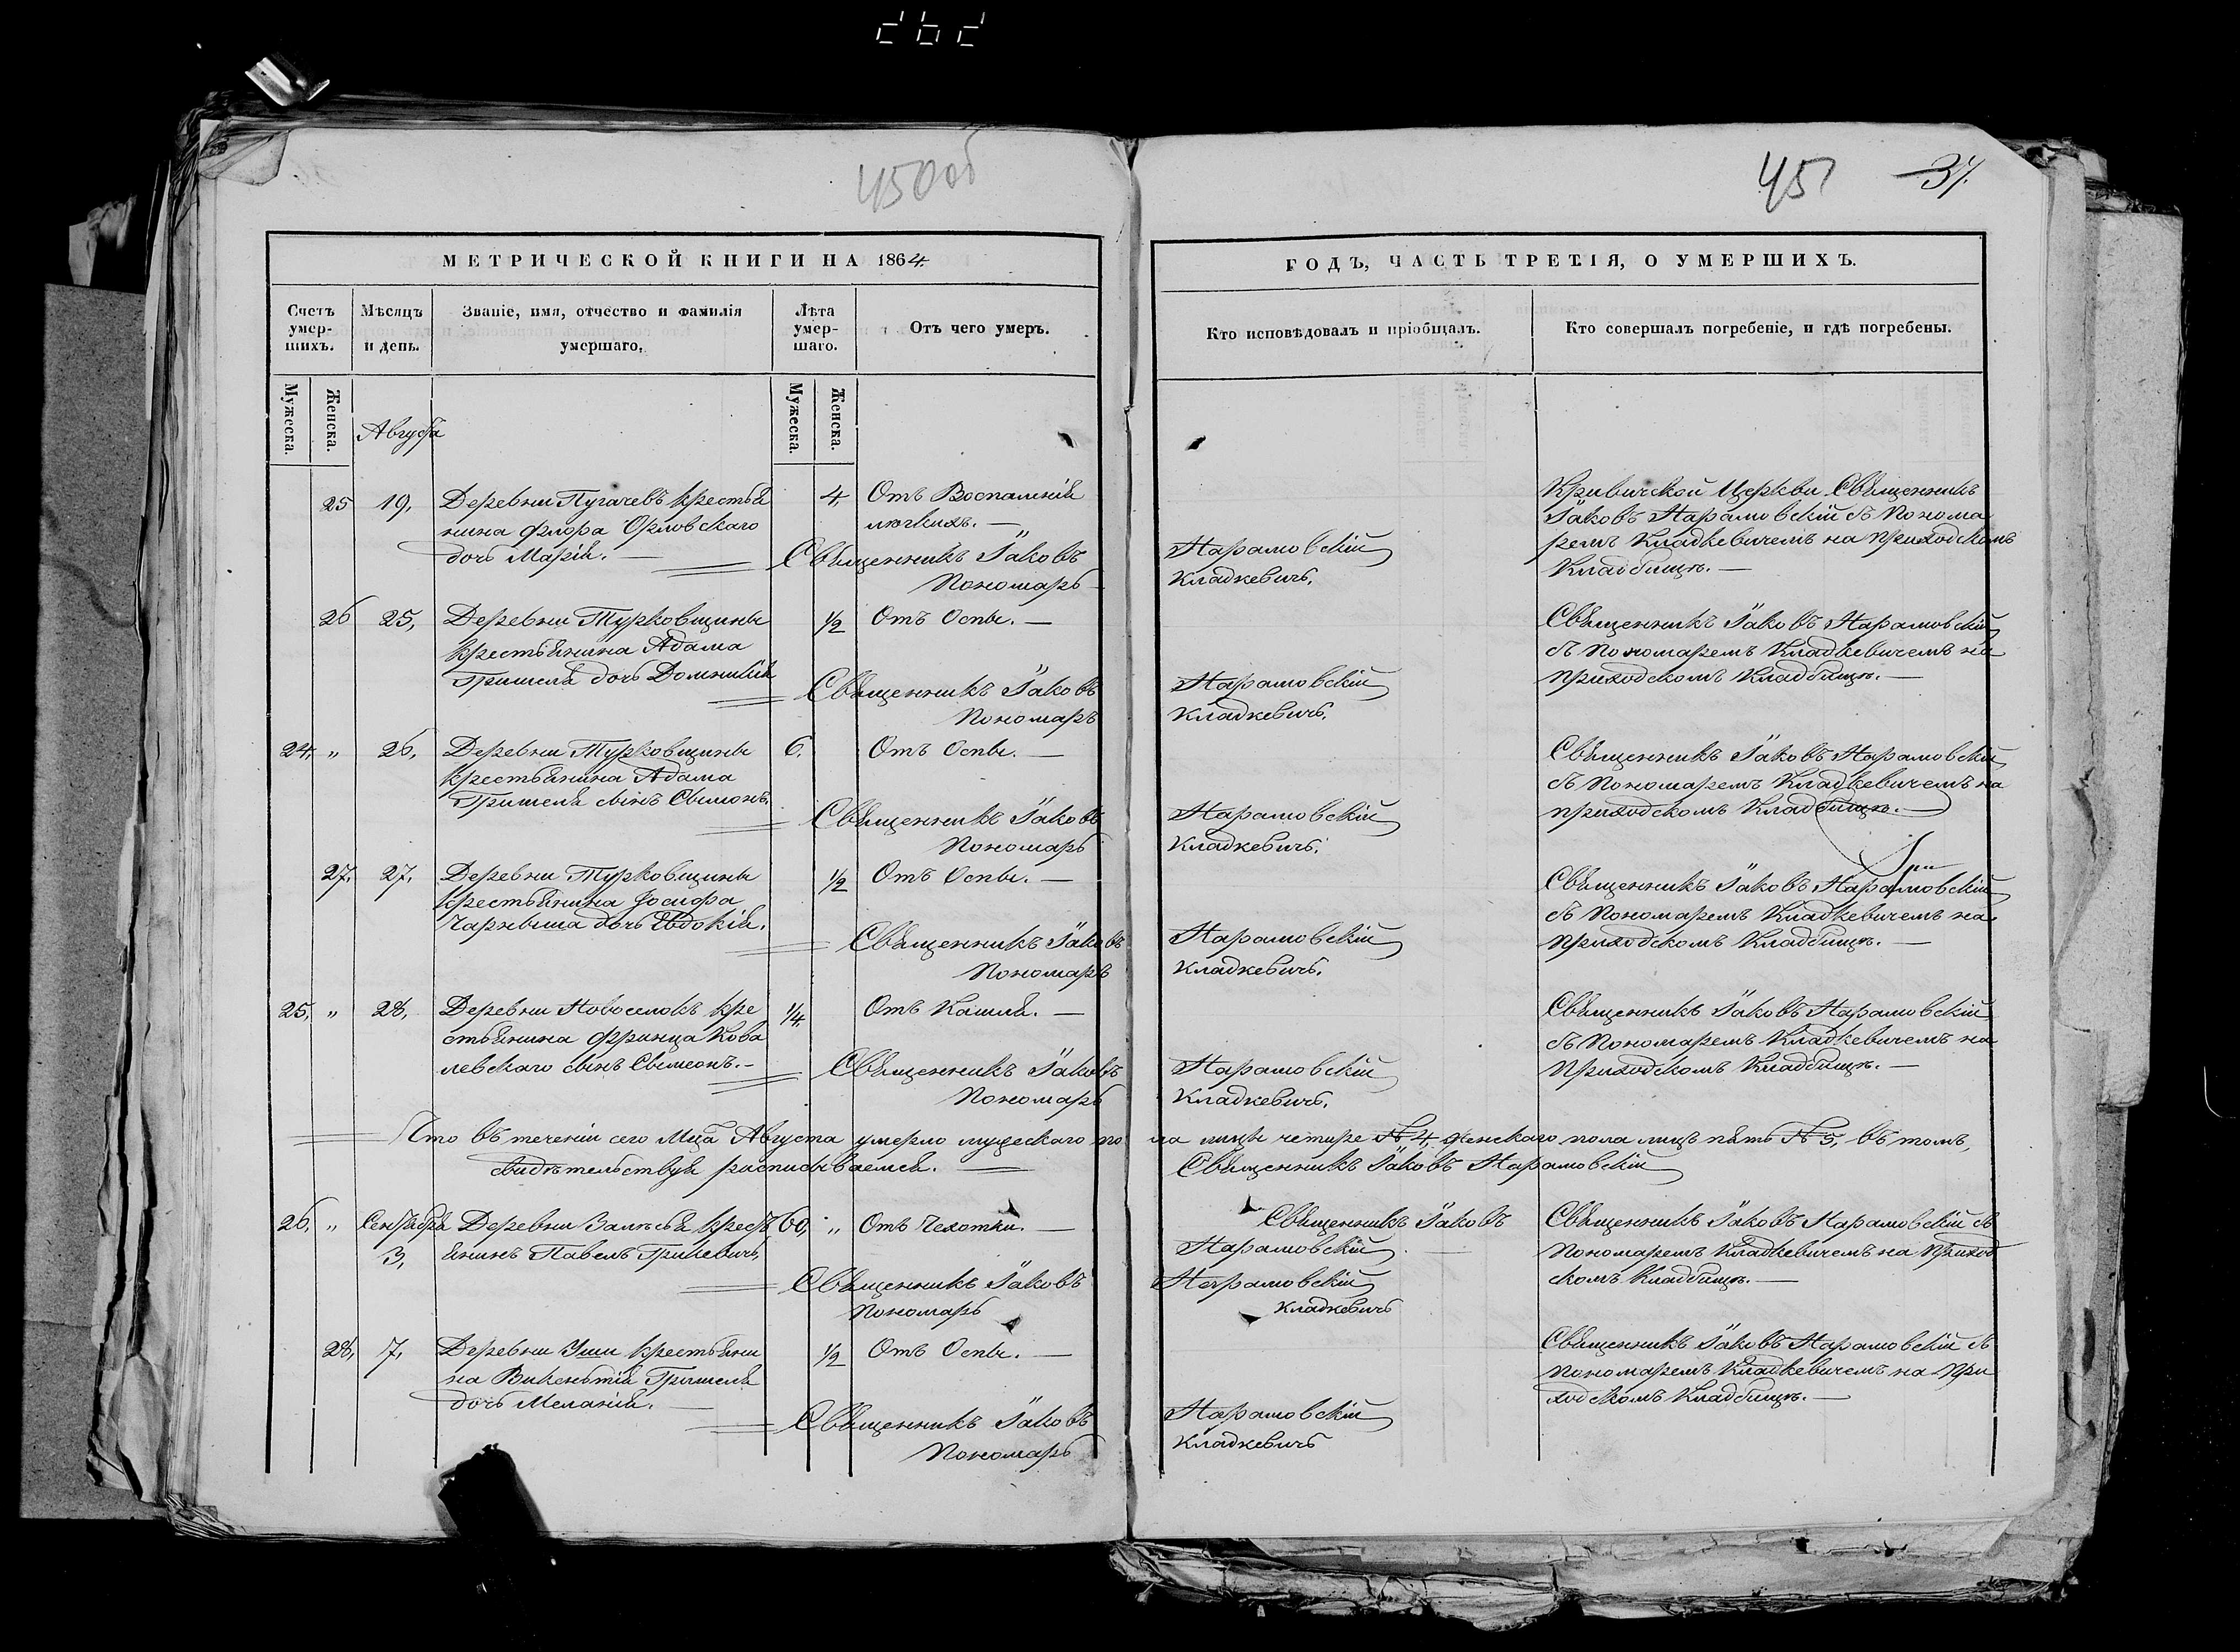 450об
451 37.
МЕТРИЧЕСКОЙ КНИГИ НА 1864.
ГОДЪ, ЧАСТЬ ТРЕТІЯ, О УМЕРШИХЪ.
Счетъ умер-шихъ.
Мѣсяцъ и день.
Званіе, имя, отчество и фамилія умершаго,
Лѣта умер-шаго.
Отъ чего умеръ.
Кто исповѣдовалъ и пріобщалъ.
Кто совершалъ погребеніе, и гдѣ погребены.
Мужеска.
Женска.
Мужеска.
Женска.
Августа
25 19, Деревни Пугачевъ крестья 4, Отъ Воспаленія
нина Флора Орловскаго легкихъ.
дочь Марія.
Священникъ Іаковъ Нарановскій
Пономарь Кладкевичъ.
Кривичской Церкви Священникъ
Іаковъ Нарановскій съ Понома
ремъ Кладкевичемъ на приходскомъ
Кладбищѣ.
26 25, Деревни Турковщины 1/2 Отъ Оспы.
крестьянина Адама
Гришеля дочь Домникія
Священникъ Іаковъ Нарановскій
Пономарь Кладкевичъ.
Священникъ Іаковъ Нарановскій
съ Пономаремъ Кладкевичемъ на
приходскомъ Кладбищѣ.
24, " 26, Деревни Турковщины 6. Отъ Оспы.
крестьянина Адама
Гришеля сынъ Симонъ.
Священникъ Іаковъ Нарановскій
Пономарь Кладкевичъ.
Священникъ Іаковъ Нарановскій
съ Пономаремъ Кладкевичемъ на
приходскомъ Кладбищѣ.
27, 27, Деревни Турковщины 1/2 Отъ Оспы.
крестьянина Іосифа
Чарныша дочь Евдокія.
Священникъ Іаковъ Нарановскій
Пономарь Кладкевичъ.
Священникъ Іаковъ Нарановскій
съ Пономаремъ Кладкевичемъ на
приходскомъ Кладбищѣ.
25, " 28, Деревни Новоселокъ кре 1/4 Отъ Кашля.
стьянина Франца Кова
левскаго сынъ Симеонъ.
Священникъ Іаковъ Нарановскій
Пономарь Кладкевичъ.
Священникъ Іаковъ Нарановскій
съ Пономаремъ Кладкевичемъ на
приходскомъ Кладбищѣ.
Что въ теченіи сего Мца Августа умерло мужескаго по ла лицъ четыре № 4, женскаго пола лицъ пять № 5, въ томъ,
свидѣтельствуя росписываемся. Священникъ Іаковъ Нарановскій
26, " Сентября 3, Деревни Залѣсья крест 60, " Отъ Чехотки.
янинъ Павелъ Грикевичъ,
Священникъ Іаковъ
Нарановскій
Священникъ Іаковъ Нарановскій
Пономарь Кладкевичъ
Священникъ Іаковъ Нарановскій съ
Пономаремъ Кладкевичемъ на приход
скомъ Кладбищѣ.
28, 7, Деревни Уши крестьяни 1/2 Отъ Оспы.
на Викентія Гришеля
дочь Меланія.
Священникъ Іаковъ Нарановскій
Пономарь Кладкевичъ
Священникъ Іаковъ Нарановскій съ
Пономаремъ Кладкевичемъ на при
ходскомъ Кладбищѣ.